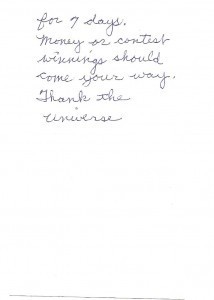 for 7 days.
Money or contest
winnings should
come your way.
Thank the
universe